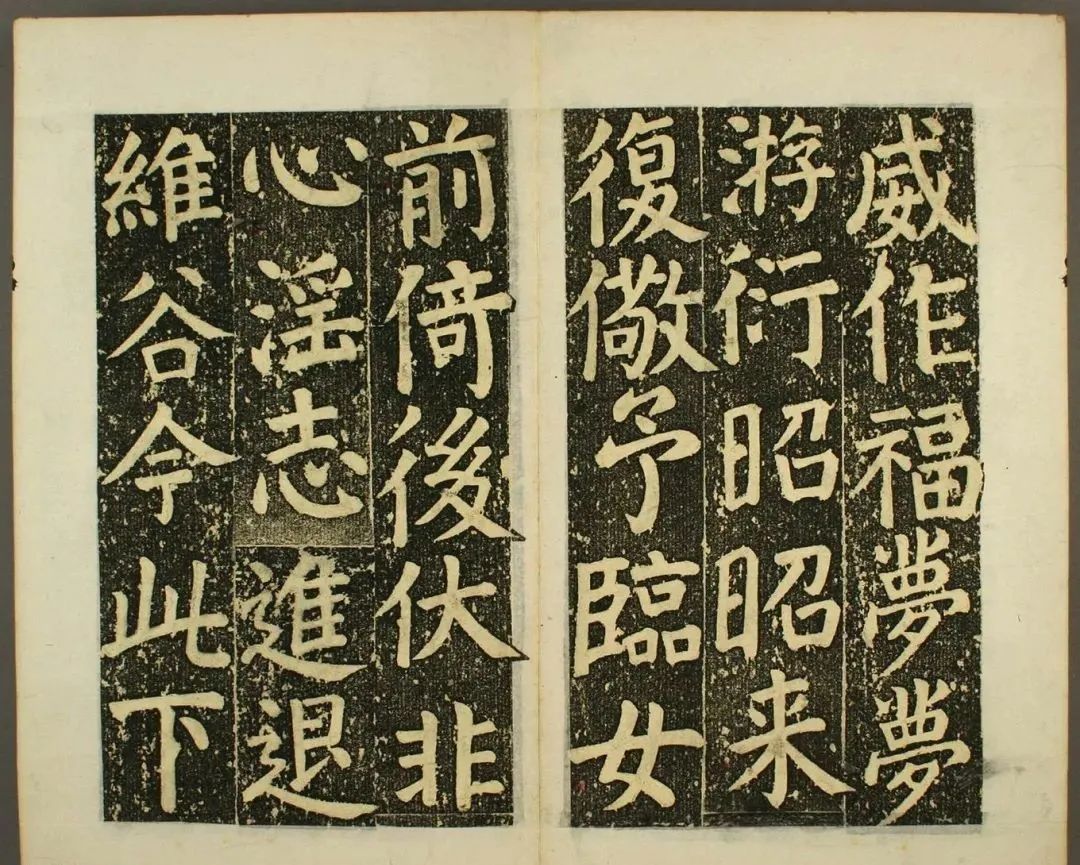 威作福夢夢
游衍昭昭来
復儆予臨女
前倚後伏非
心淫志進退
維谷今此下